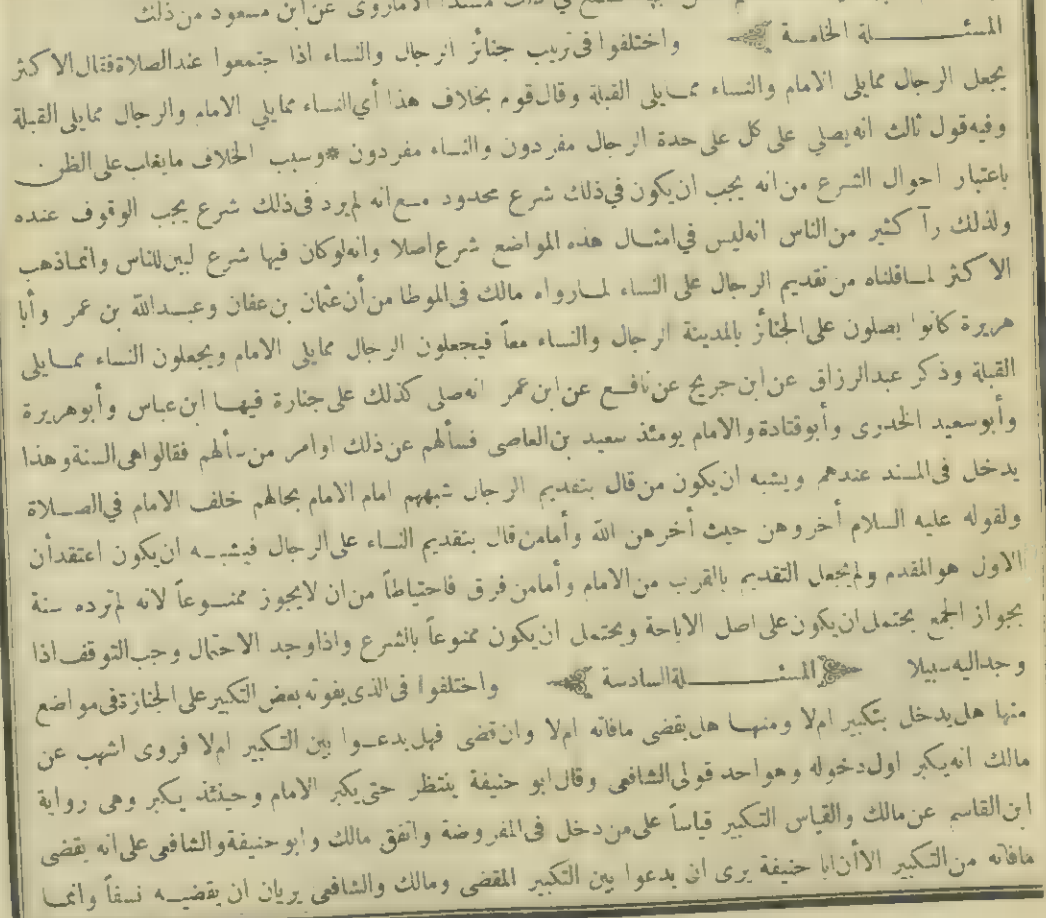 في ذلك مسندا الا ماروى عن ابن مسعود من ذلك
المسئلة الخامسة واختلفوا فى تريب جنائز الرجال والنساء اذا جتمعوا عند الصلاة فقال الاكثر
يجعل الرجال ممايلى الامام والنساء ممايلى القبلة وقال قوم بخلاف هذا أي النساء ممايلي الامام والرجال ممايلى القبلة
وفيه قول ثالث انه يصلي على كل على حدة الرجال مفردون والنساء مفردون *وسبب الخلاف مايغاب على الظن
باعتبار احوال الشرع من انه يجب ان يكون في ذلك شرع محدود مع انه لم يرد فى ذلك شرع يجب الوقوف عنده
ولذلك رآ كثير من الناس انه ليس في امثال هذه المواضع شرع اصلا وانه لوكان فيها شرع لبين للناس وانما ذهب
الاكثر لما قلناه من تقديم الرجال على النساء لما رواه مالك فى الموطا من أن عثمان بن عفان وعبد الله بن عمر وأبا
هريرة كانوا يصلون على الجنائز بالمدينة الرجال والنساء معاً فيجعلون الرجال ممايلى الامام ويجعلون النساء ممايلى
القبلة وذكر عبد الرزاق عن ابن جريج عن نافع عن ابن عمر انه صلى كذلك على جنازة فيها ابن عباس وأبو هريرة
وأبو سعيد الخدرى وأبو قتادة والامام يومئذ سعيد بن العاصى فسألهم عن ذلك اوامر من سألهم فقالوا هى السنة وهذا
يدخل فى المسند عندهم ويشبه ان يكون من قال بتقديم الرجال شبههم امام الامام بحالهم خلف الامام في الصلاة
ولقوله عليه السلام أخروهن حيث أخرهن الله وأما من قال بتقديم النساء على الرجال فيشبه ان يكون اعتقد أن
الاول هو المقدم ولم يجعل التقديم بالقرب من الامام وأما من فرق فاحتياطاً من ان لايجوز ممنوعاً لانه لم ترده سنة
بجواز الجمع يحتمل ان يكون على اصل الاباحة ويحتمل ان يكون ممنوعاً بالشرع واذا وجد الاحتمال وجب التوقف اذا
وجد اليه سبيلا المسئلة السادسة واختلفوا فى الذى يفوته بعض التكبير على الجنازة فى مواضع
منها هل يدخل بتكبير ام لا ومنها هل يقضى مافاته ام لا وان قضى فهل يدعوا بين التكبير ام لا فروى اشهب عن
مالك انه يكبر اول دخوله وهو احد قولى الشافعى وقال ابو حنيفة ينتظر حتى يكبر الامام وحينئذ يكبر وهى رواية
ابن القاسم عن مالك والقياس التكبير قياساً على من دخل فى المفروضة واتفق مالك وابو حنيفة والشافعى على انه يقضى
مافاته من التكبير الا أن ابا حنيفة يرى ان يدعوا بين التكبير المقضى ومالك والشافعى يريان ان يقضيه نسقاً وانما